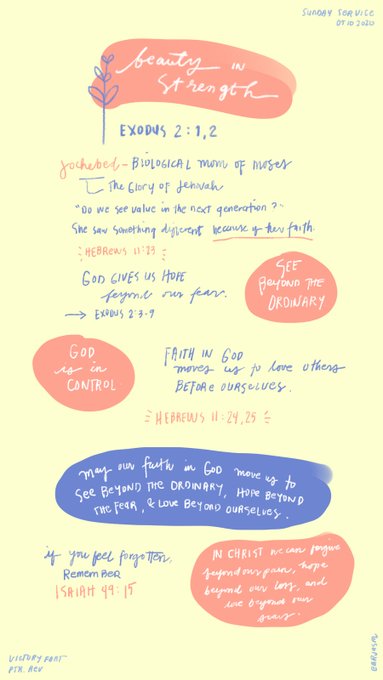 SUNDAY SERVICE
05 10 2020
beauty IN
strength
EXODUS 2:1,2
jochebed - BIOLOGICAL mom OF MOSES
The Glory of Jehovah
"Do we see value in the next generation?"
She saw something different because of her faith.
HEBREWS 11:23
GOD GIVES US HOPE
beyond our fear.
→ EXODUS 2:3-9
SEE
BEYOND THE
ORDINARY
GOD
is in
CONTROL
FAITH IN GOD
moves us to love others
BEFORE OURSELVES.
HEBREWS 11:24,25
may our faith in GOD move us to
SEE BEYOND THE ORDINARY, HOPE BEYOND
THE FEAR, & LOVE BEYOND OURSELVES.
if you feel forgotten,
Remember
ISAIAH 49:15
IN CHRIST we can forgive
beyond our pain, hope
beyond our loss, and
love beyond our
scars.
VICTORY FORT
PTR.